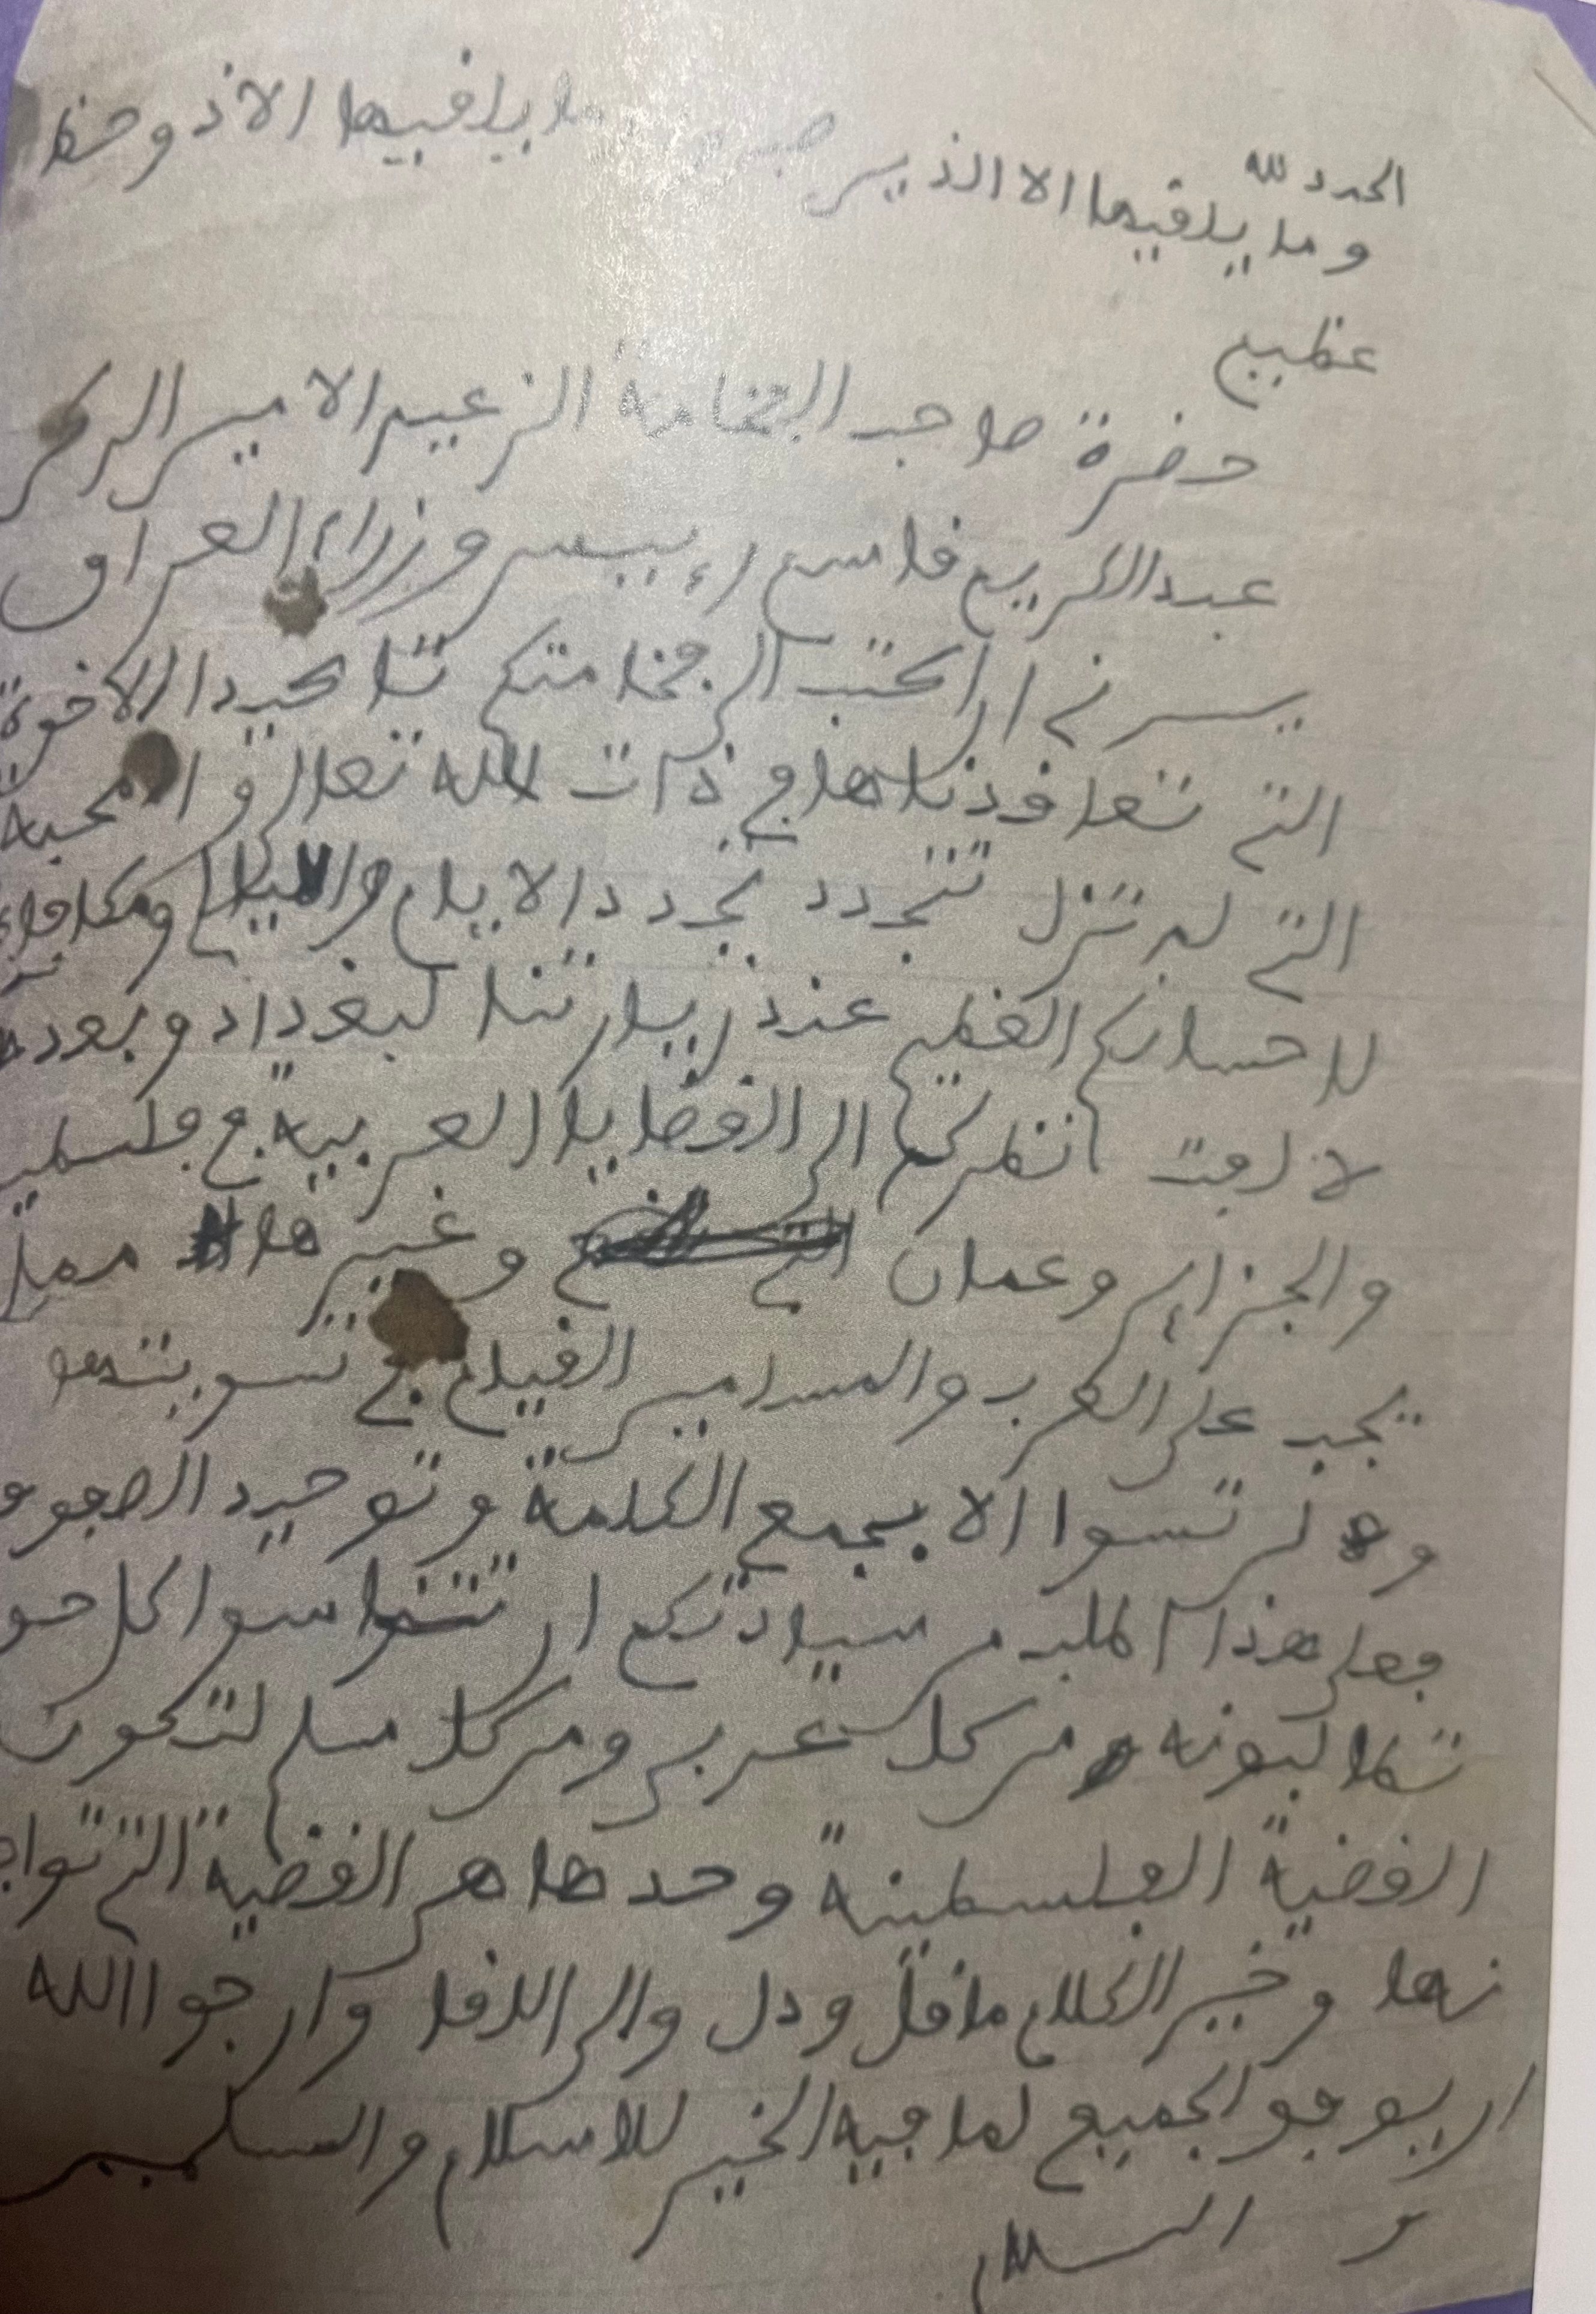 الحمد لله
وما يلقيها الا الذين وما يلقيها الا ذو حظ
عظيم
حضرة صاحب الفخامة الزعيم الامير الركن
عبد الكريم قاسم رءيس وزراء العراق
يسرني ان اكتب الى فخامتكم تاكيدا للاخوة
التي تعاقدناها في ذات الله تعالى والمحبة
التي لم تزل تتجدد بتجدد الايام والليالي ومكافاة
لاحسانكم العظيم عند زيارتنا لبغداد وبعدها
لا زمت انظركم الى القضايا العربية في فلسطين
والجزاير وعمان وغيرها مما
يجب على العرب والمسلمين القيام في تسويتها
ولن تسوا الا بجمع الكلمة وتوحيد الصفوف
فعلى هذا اطلب من سيادتكم ان تتناسوا كل حق
تطالبونه من كل عربي ومن كل مسلم لتكون
القضية الفلسطينة وحدها هي القضية التي تواج
نها وخير الكلام ما قل ودل والى اللقا وارجوا الله
ان يوفق الجميع لما فيه الخير للاسلام والمسلمين
والسلام